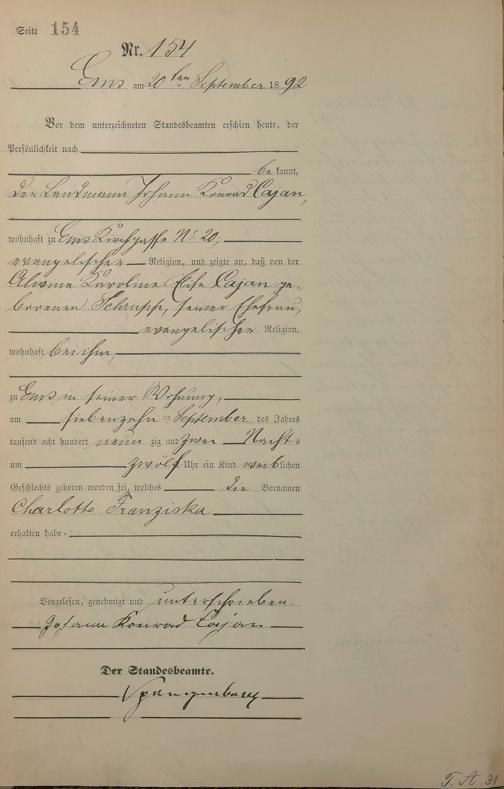 Seite 154
Nr. 154
Ems am 20ten September 1892
Vor dem unterzeichneten Standesbeamten erschien heute, der
Persönlichkeit nach
be kannt,
der Landmann Johann Konrad Cajan,
wohnhaft zu Ems Kirchgasse No 20,
evangelischer Religion, und zeigte an, daß von der
Karoline Elise Cajan ge-
borenen seiner Ehefrau,
evangelischer Religion,
wohnhaft bei ihm,
zu Ems in seiner Wohnung,
am siebenzehn ten September des Jahres
tausend acht hundert neun zig und zwei Nacht s
um zwölf Uhr ein Kind weiblichen
Geschlechts geboren worden sei, welches die Vornamen
Charlotte Franziska
erhalten habe.
Vorgelesen, genehmigt und unterschrieben
Johann Konrad Cajan
Der Standesbeamte.
Spangenberg
T. A. 31